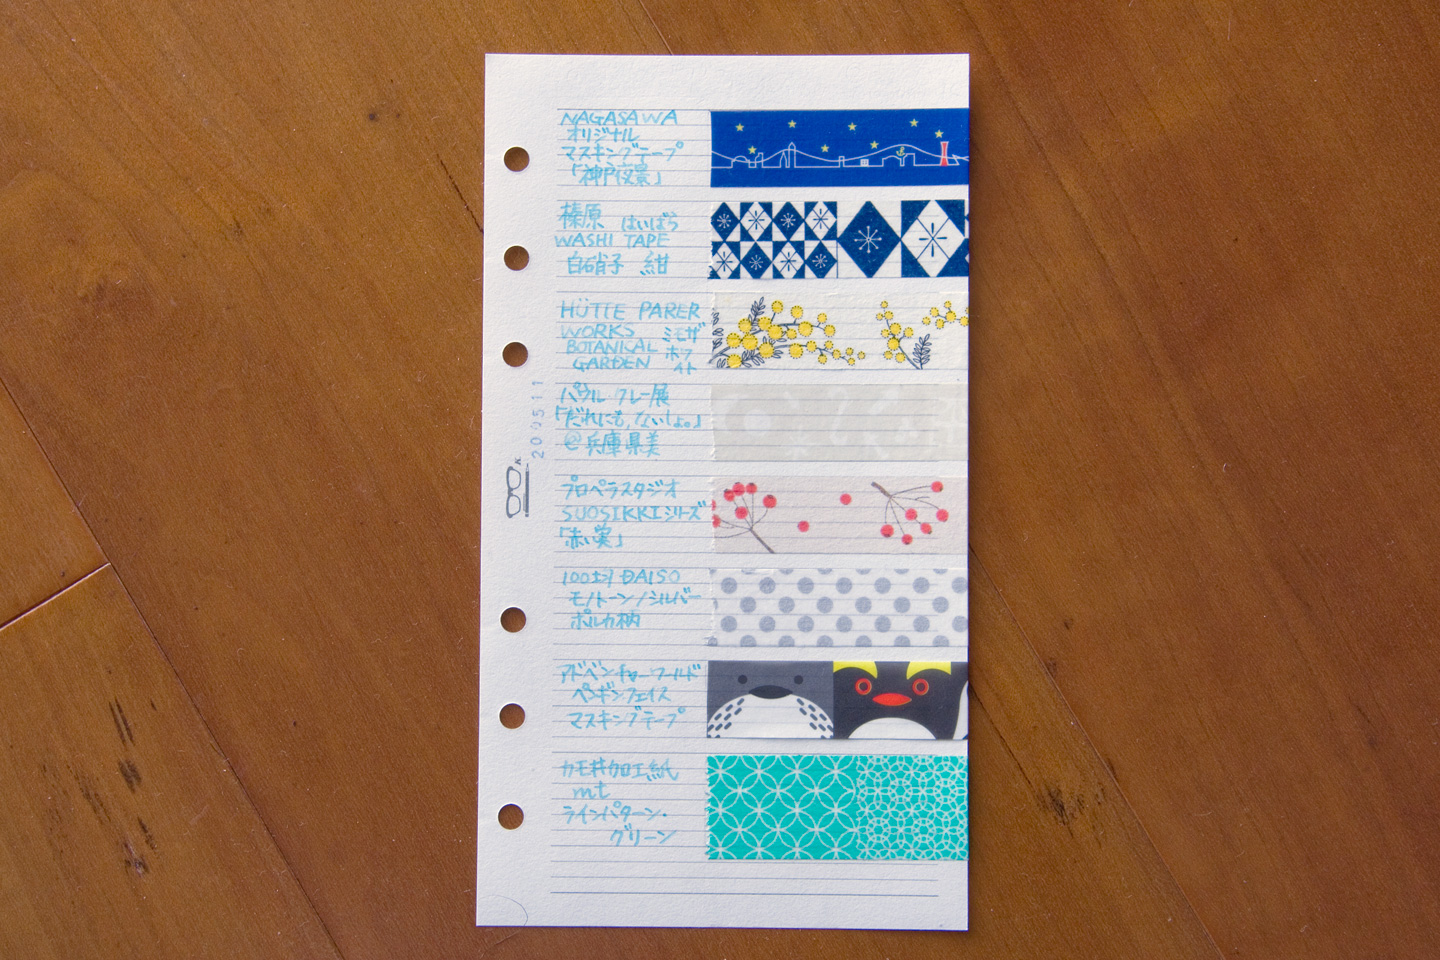 NAGASAWA
オリジナル
マスキングテープ
「神戸夜景」
榛原 はいばら
WASHI TAPE
白硝子 紺
HÜTTE PAPER
WORKS ミモザ
BOTANICAL ホワ
GARDEN イト
パウル・クレー展
「だれにも、ないしょ。」
@兵庫県美
プロペラスタジオ
SUOSIKKIシリーズ
「赤い実」
100均 DAISO
モノトーン/シルバー
ポルカ柄
アドベンチャーワールド
ペンギンフェイス
マスキングテープ
カモ井加工紙
mt
ラインパターン・
グリーン
K